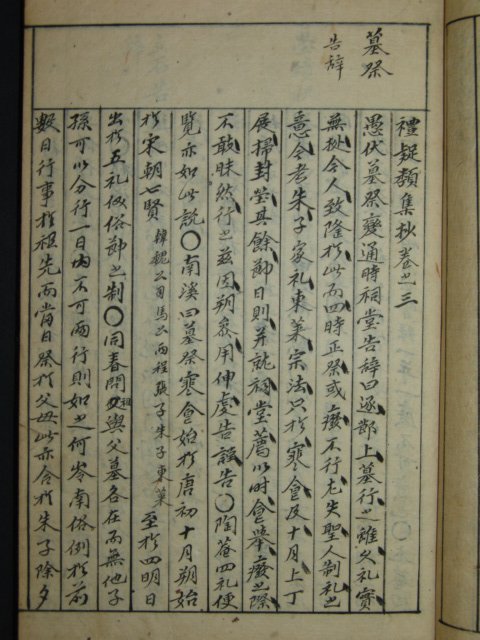 墓祭
告辞
禮疑類集抄 卷之三
愚伏墓祭變通時祠堂告辞曰逐節上墓行之雖久礼實
無抛今人致隆於此而四時正祭或廢不行尤失聖人制礼之
意今考朱子家礼東萊宗法只於寒食及十月上丁
展掃封塋其餘節日則并就祠堂薦以時食擧廢之際
不敢昧然行之茲因朔參用伸虔告謹告○陶菴四礼便
覽亦如此說○南溪曰墓祭寒食始於唐初十月朔始
於宋朝七賢 韓魏公司馬公兩程張子朱子東萊 至於四明日
出於五礼儀俗節之制○同春問祖與父墓各在而無他子
孫可以分行一日內不可兩行則如之何岺南俗例於前
數日行事於祖先而當日祭於父母此亦合於朱子除夕